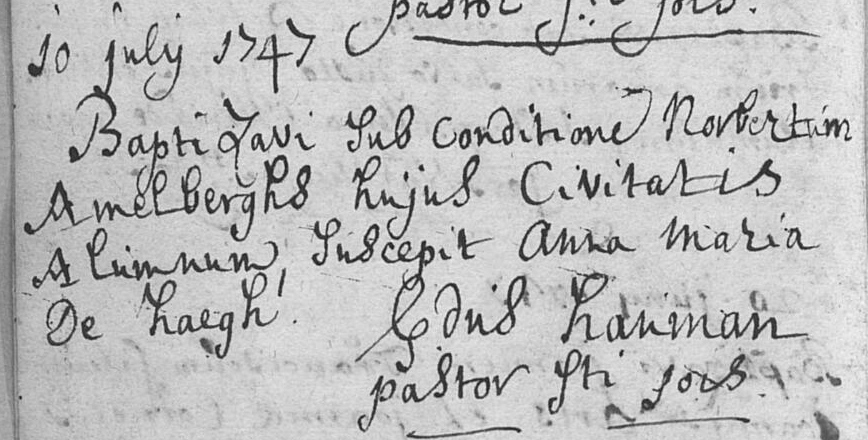 pastor Sti jois.
10 july 1747
Baptizavi sub conditione Norbertum
Amelberghs hujus Civitatis
Alumnum, suscepit Anna Maria
De haegh.
hauman
pastor Sti jois.